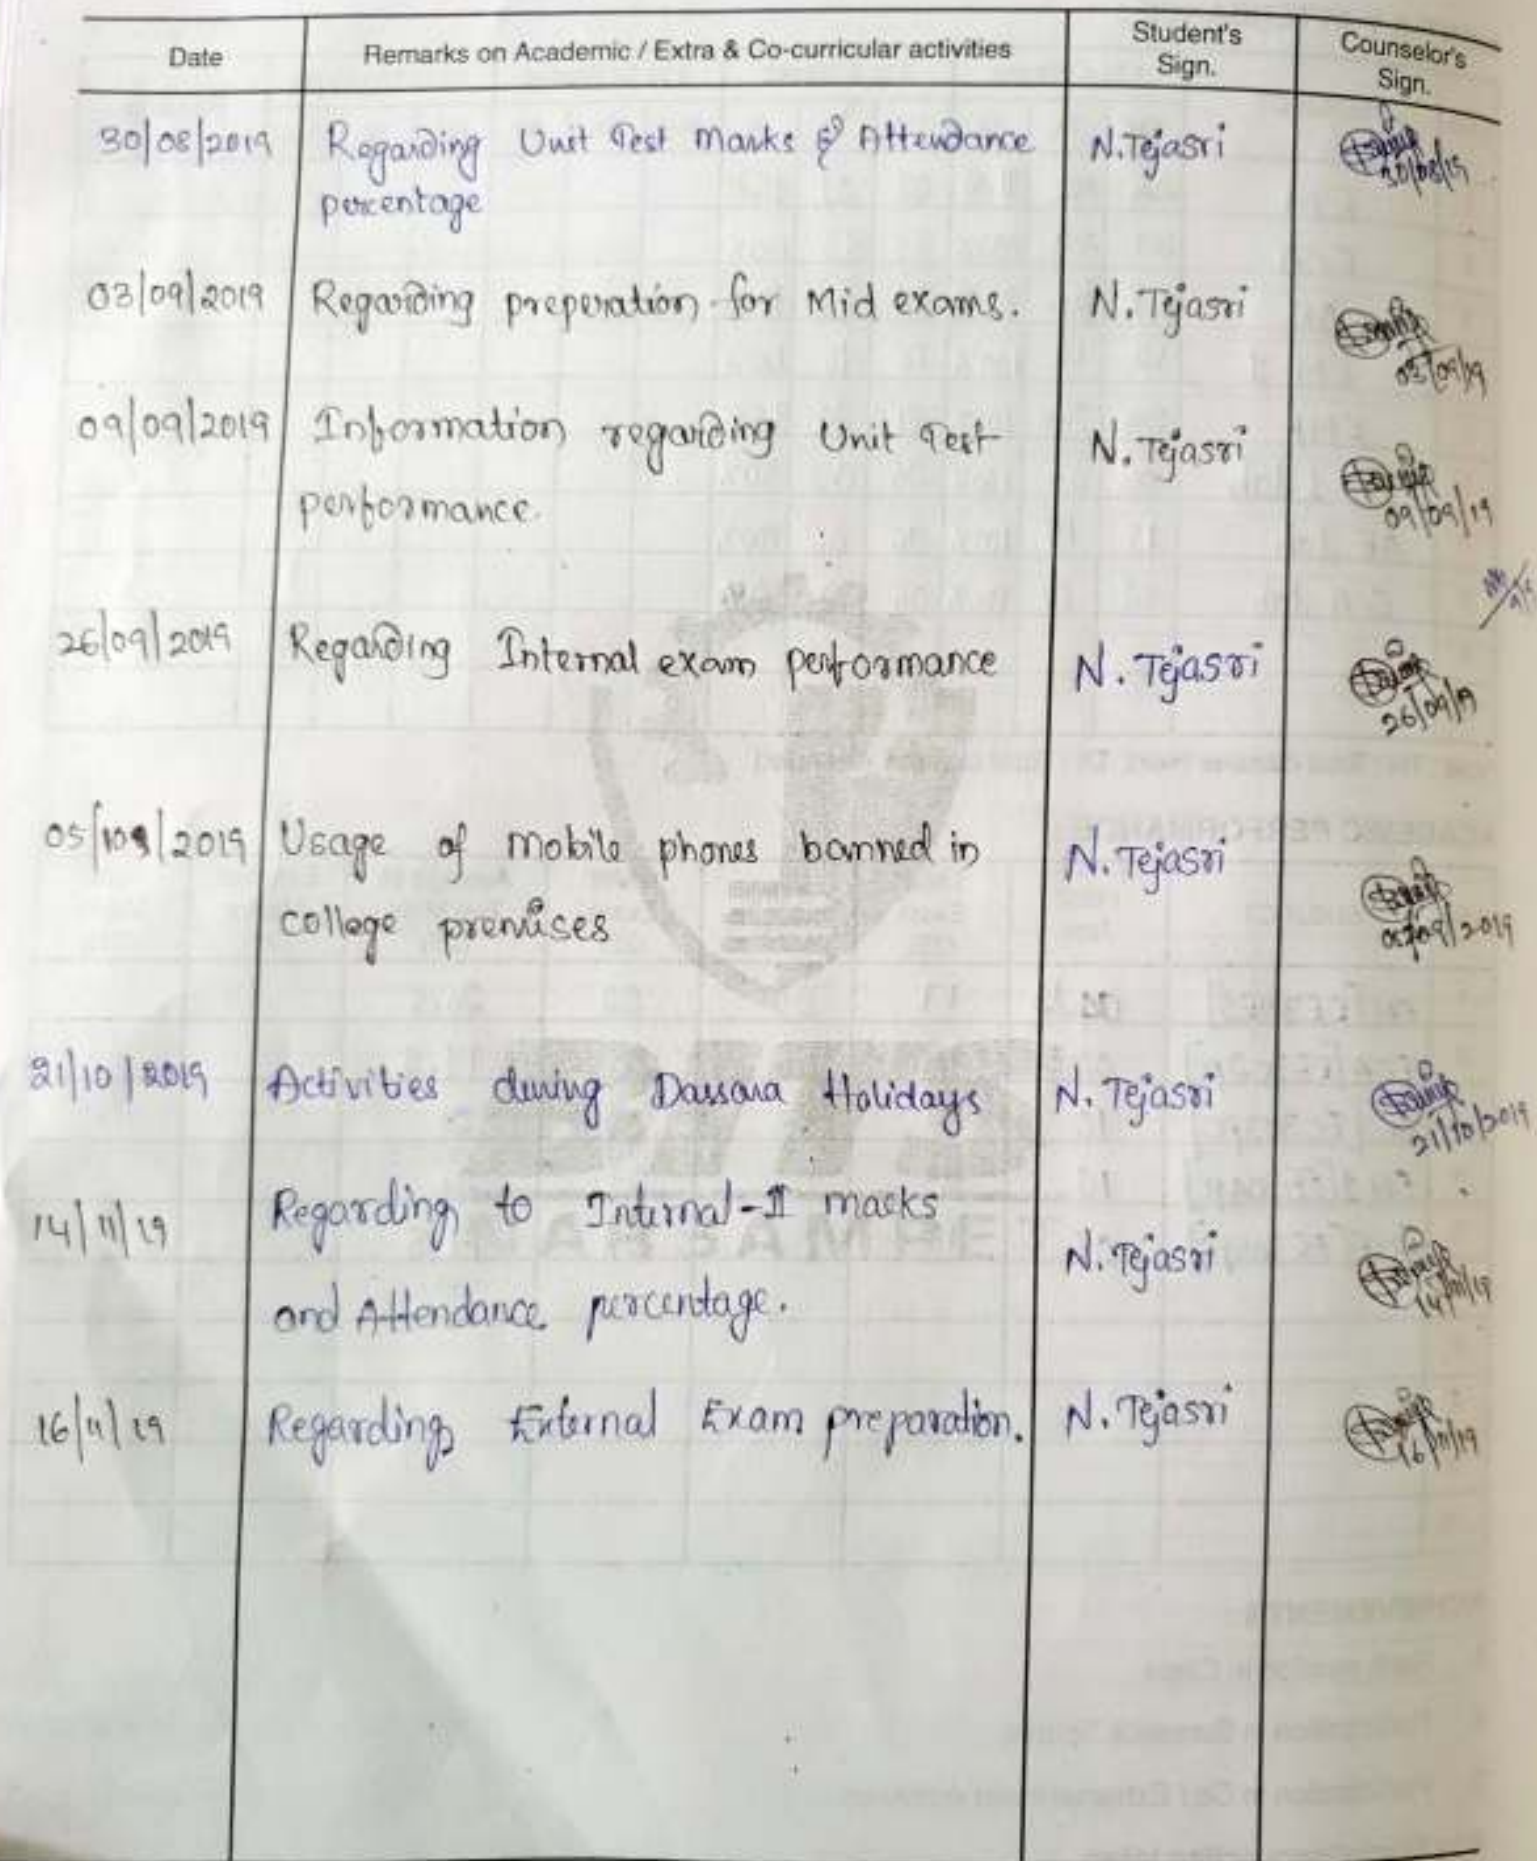 Date Remarks on Academic / Extra & Co-curricular activities Student's Sign. Counselor's Sign.
30/08/2019 Regarding Unit Test Marks & Attendance N.Tejasri
percentage 30/08/19
03/09/2019 Regarding preperation for Mid exams. N.Tejasri
03/09/19
09/09/2019 Information regarding Unit Test N.Tejasri
performance. 09/09/19
26/09/2019 Regarding Internal exam performance N.Tejasri
26/09/19
2019 Usage of mobile phones banned in N.Tejasri
college premises 2019
21/10/2019 Activities during Dassara Holidays N.Tejasri
21/10/2019
14/11/19 Regarding to Internal-II marks N.Tejasri
and Attendance percentage. 14/11/19
16/11/19 Regarding External Exam preparation. N.Tejasri
16/11/19